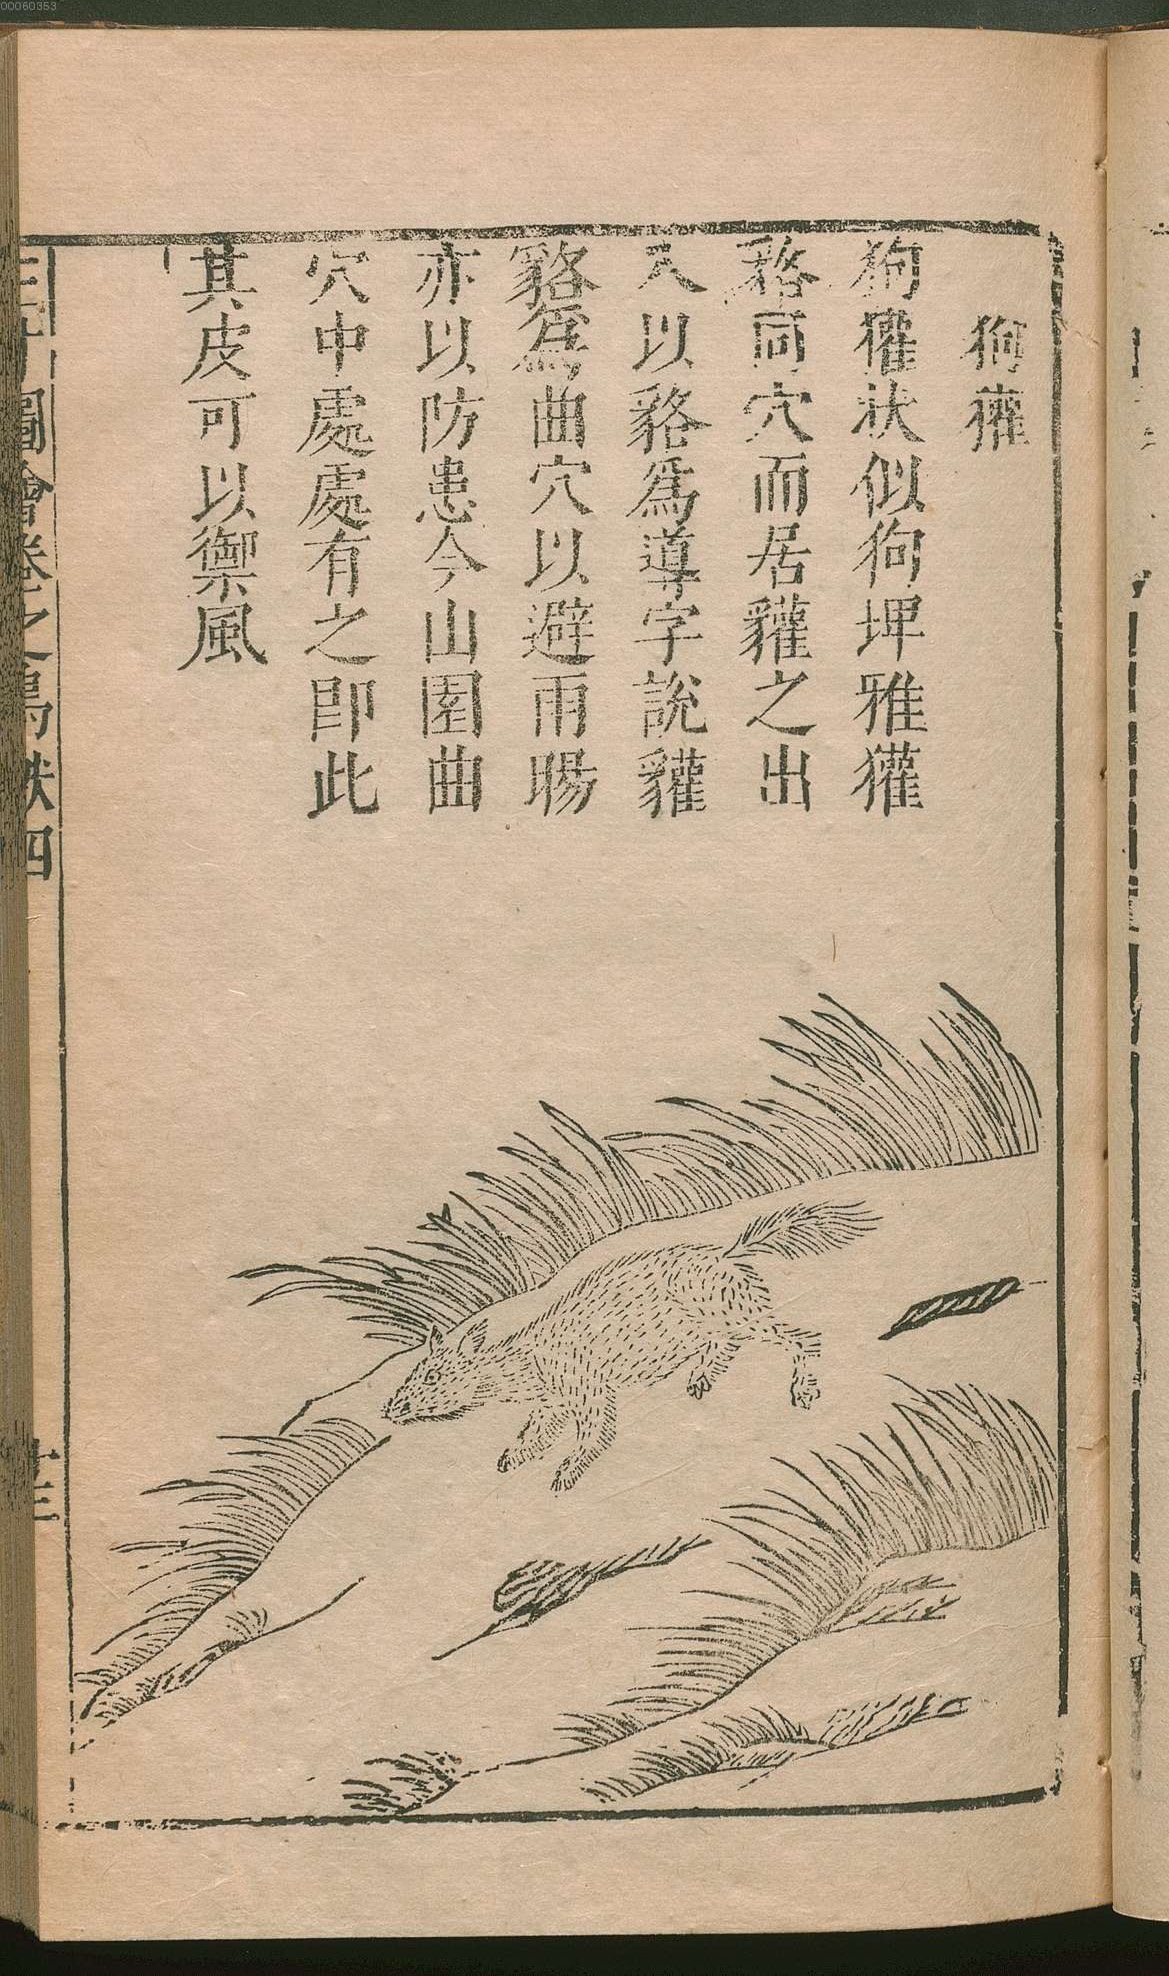 狗獾
狗獾状似狗埤雅獾
貉同穴而居貛之出
入以貉爲導字說貛
貉爲曲穴以避雨暘
亦以防患今山園曲
穴中處處有之即此
其皮可以禦風
三才圖會卷之鳥獸四
十三
00060353